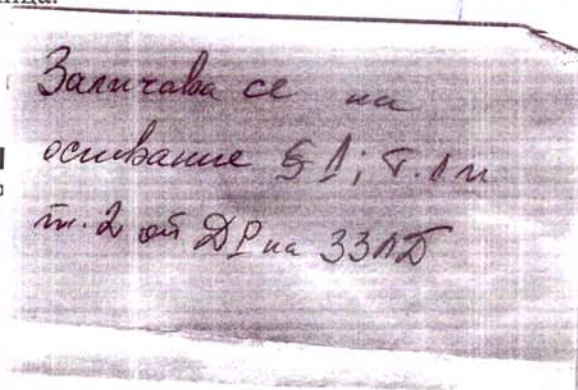 Заличава се на
основание § 1; т. 1 и
т. 2 от ДР на ЗЗЛД